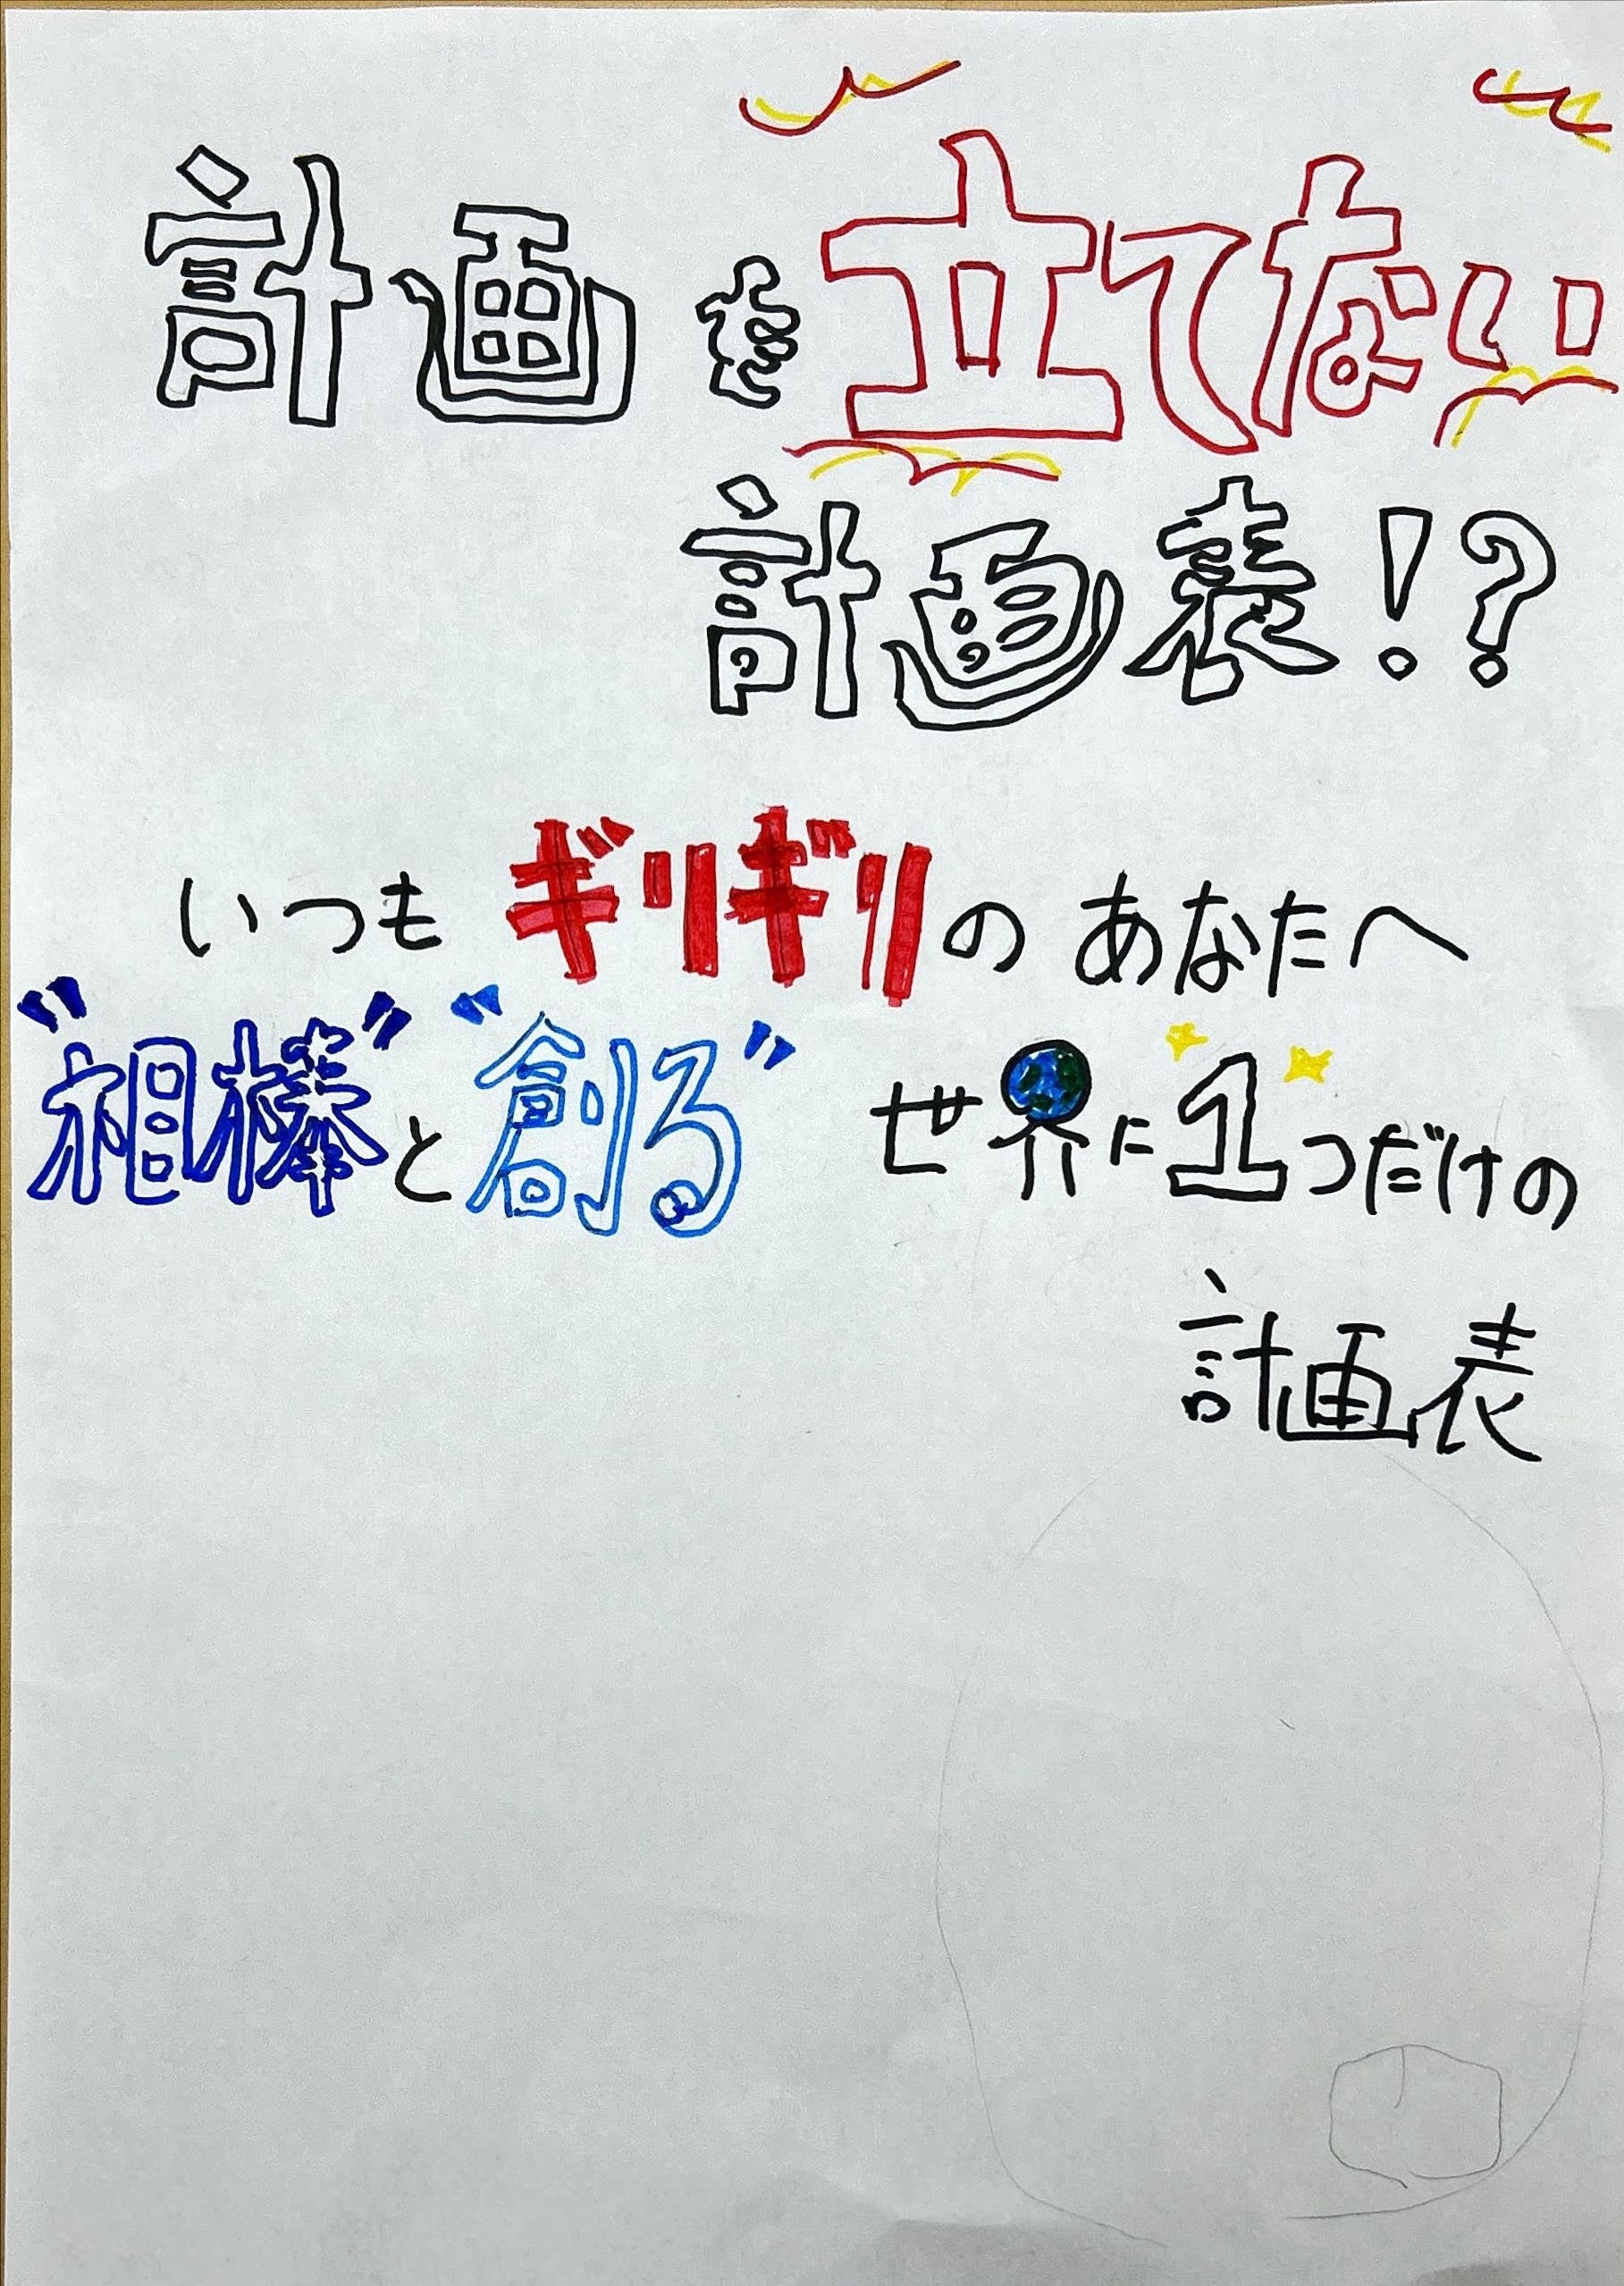 計画を立てない
計画表!?
いつもギリギリのあなたへ
"相棒"と"創る" 世界に1つだけの
計画表